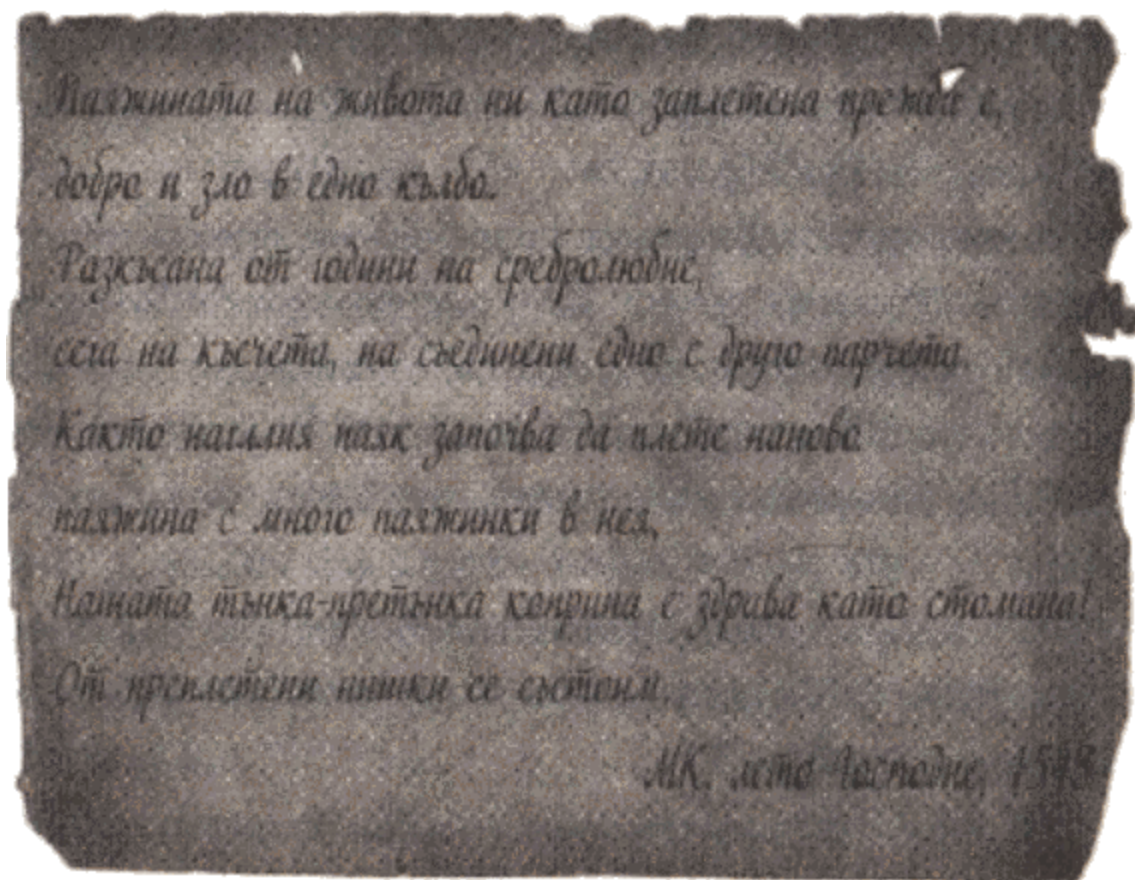 Паяжината на живота ни като заплетена прежда е,
добро и зло в едно кълбо.
Разкъсани от години на сребролюбие,
сега на късчета, на съединени едно с друго парчета.
Както наглия паяк започва да плете наново
паяжина с много паяжинки в нея,
Нашата тънка-претънка коприна е здрава като стомана!
От преплетени нишки се състоим.
МК, лето Господне,